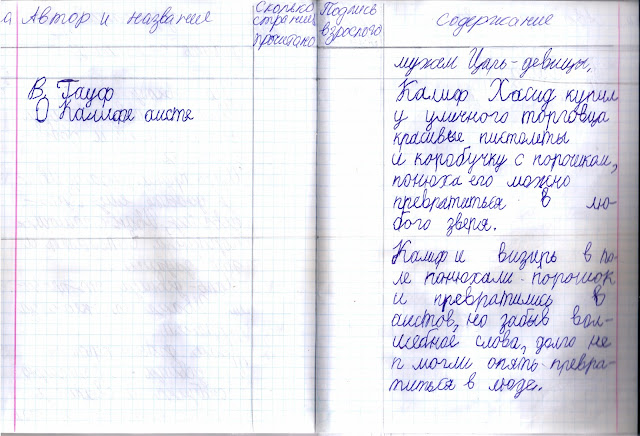 а Автор и название
Сколько
страниц
прочитано
Подпись
взрослого
Содержание
В. Гауф
О Калифе аисте
мужем Царь-девицы.
Калиф Хасид купил
у уличного торговца
красивые пистолеты
и коробучку с порошком,
понюха его можно
превратиться в лю-
бого зверя.
Калиф и визирь в по
ле понюхали порошок
и превратились в
аистов, но забыв вол-
шебное слова, долго не
п могли опять превра-
титься в люзе.